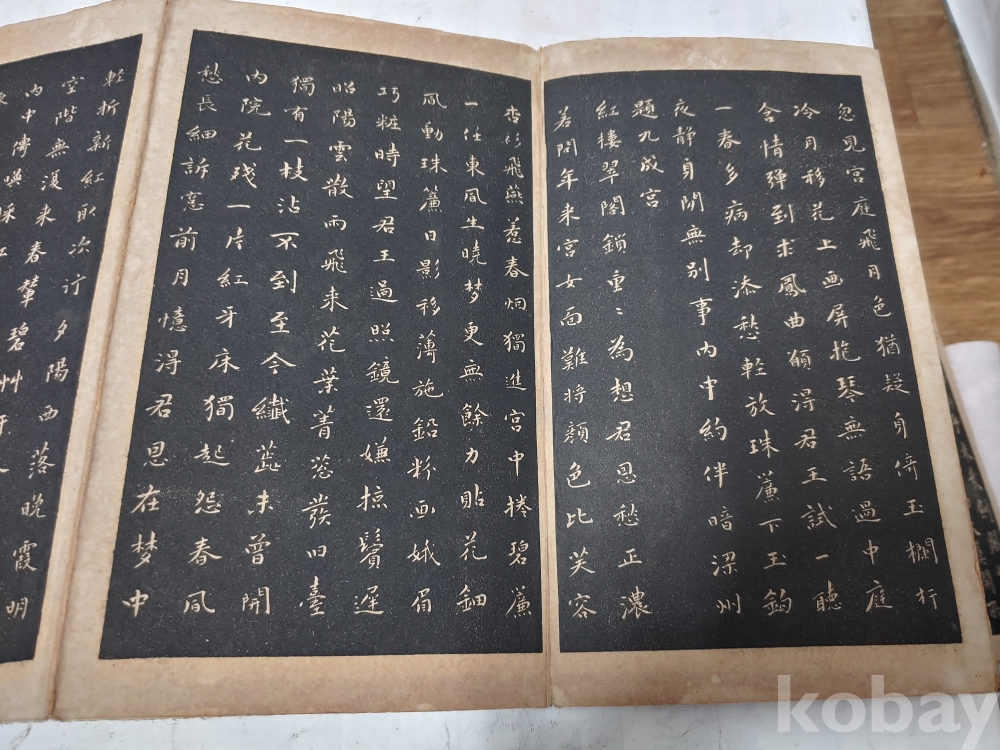 忽見宮庭飛月色猶疑身倚玉欄行
冷月移花上画屏抱琴無語過中庭
含情彈到求鳳曲願得君王試一聽
一春多病却添愁軽放珠簾下玉鈎
夜静身閑無別事内中約伴暗梁州
題九成宮
紅樓翠閣鎖重〻為想君恩愁正濃
若問年来宮女面難将顔色比芙容
杏杉飛燕惹春烟獨進宮中捲碧簾
一任東風生曉梦更無餘力貼花鈿
風動珠簾日影移薄施鉛粉画娥眉
巧粧時望君王過照鏡還嫌掠鬢遅
昭陽雲散雨飛来花葉菁葱發旧臺
獨有一枝沾不到至今纖蕋未曾開
内院花残一片紅牙床獨起怨春風
愁長細訴窓前月憶淂君恩在梦中
軽折新紅
次
夕陽西落晚霞明
空階無復来春輦碧艸
内中傳喚採
kobay